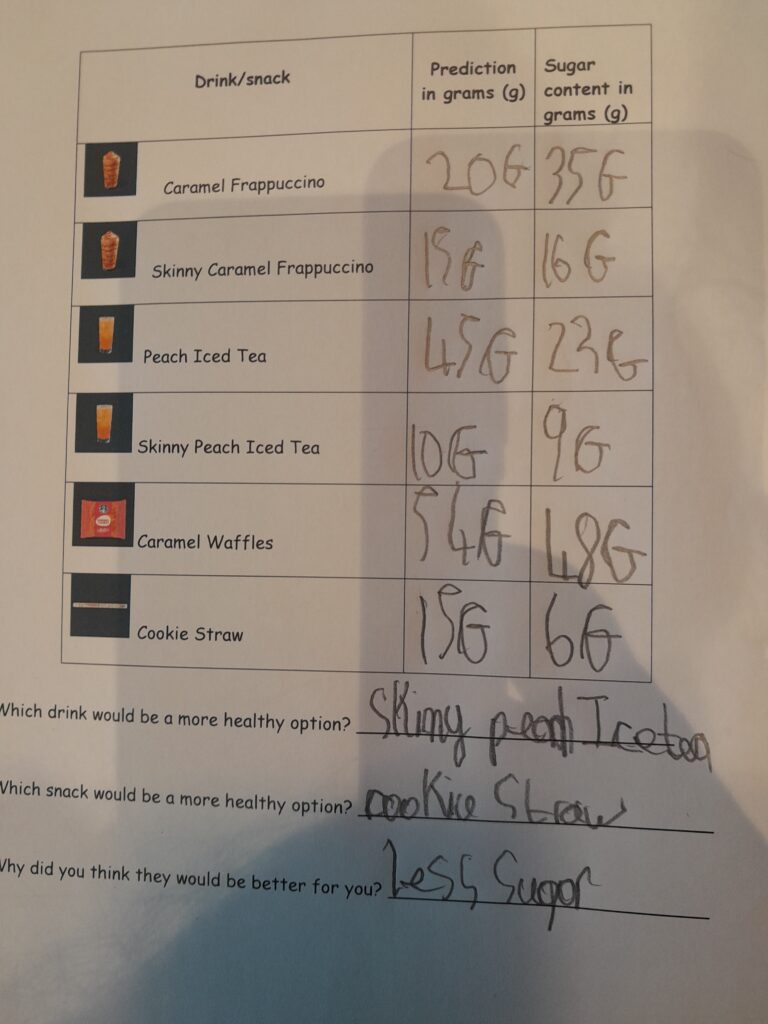 Drink/snack Prediction in grams (g) Sugar content in grams (g)
Caramel Frappuccino 20G 35G
Skinny Caramel Frappuccino 15G 16G
Peach Iced Tea 45G 23G
Skinny Peach Iced Tea 10G 9G
Caramel Waffles 54G 48G
Cookie Straw 15G 6G
Which drink would be a more healthy option? Skinny peach Icetea
Which snack would be a more healthy option? cookie Straw
Why did you think they would be better for you? Less Sugar